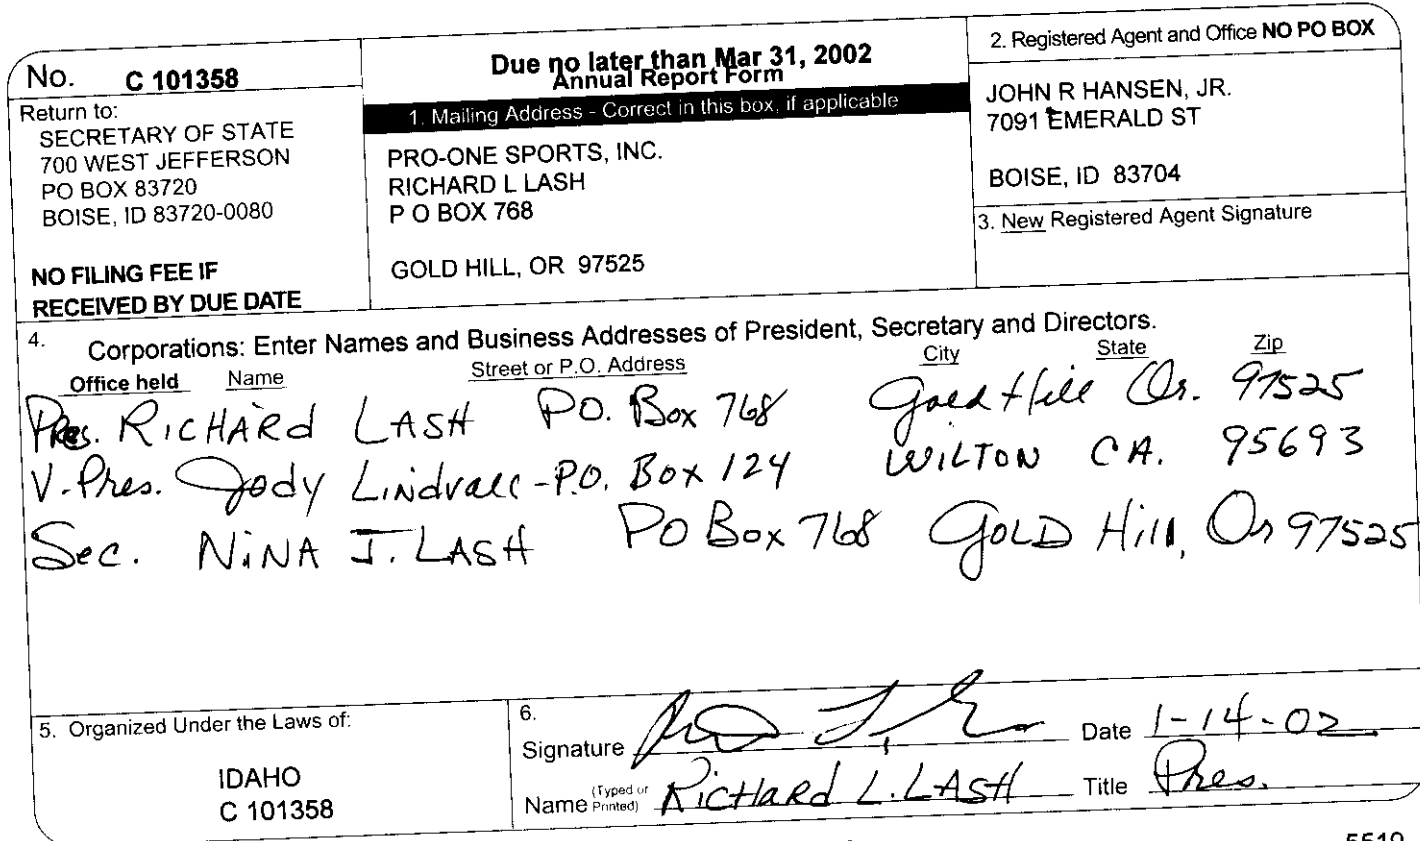 No. C 101358
Return to:
SECRETARY OF STATE
700 WEST JEFFERSON
PO BOX 83720
BOISE, ID 83720-0080
NO FILING FEE IF
RECEIVED BY DUE DATE
Due no later than Mar 31, 2002
Annual Report Form
1. Mailing Address - Correct in this box, if applicable
PRO-ONE SPORTS, INC.
RICHARD L LASH
P O BOX 768
GOLD HILL, OR 97525
2. Registered Agent and Office NO PO BOX
JOHN R HANSEN, JR.
7091 EMERALD ST
BOISE, ID 83704
3. New Registered Agent Signature
4. Corporations: Enter Names and Business Addresses of President, Secretary and Directors.
Office held Name Street or P.O. Address City State Zip
Pres. RICHARd LASH PO. Box 768 Gold Hill Or. 97525
V-Pres. Jody Lindvall - P.O. Box 124 WILTON CA. 95693
Sec. NiNA J. LASH PO Box 768 GOLD Hill, Or 97525
5. Organized Under the Laws of:
IDAHO
C 101358
6.
Signature Date 1-14-02
Name (Typed or Printed) RicHaRd L. LASH Title Pres.